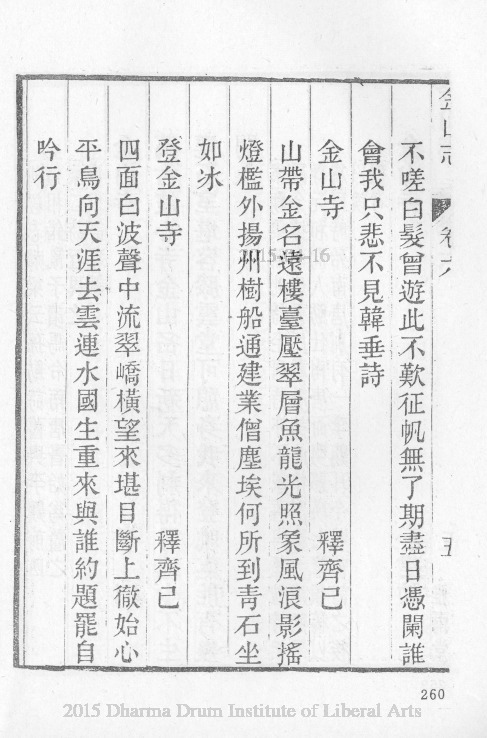 金山志 卷六 五
不嗟白髮曾遊此不歎征帆無了期盡日憑闌誰
會我只悲不見韓垂詩
金山寺 釋齊己
山帶金名遠樓臺壓翠層魚龍光照象風浪影搖
燈檻外揚州樹船通建業僧塵埃何所到青石坐
如冰
登金山寺 釋齊己
四面白波聲中流翠嶠橫望來堪目斷上徹始心
平鳥向天涯去雲連水國生重來與誰約題罷自
吟行
260
2015 Dharma Drum Institute of Liberal Arts